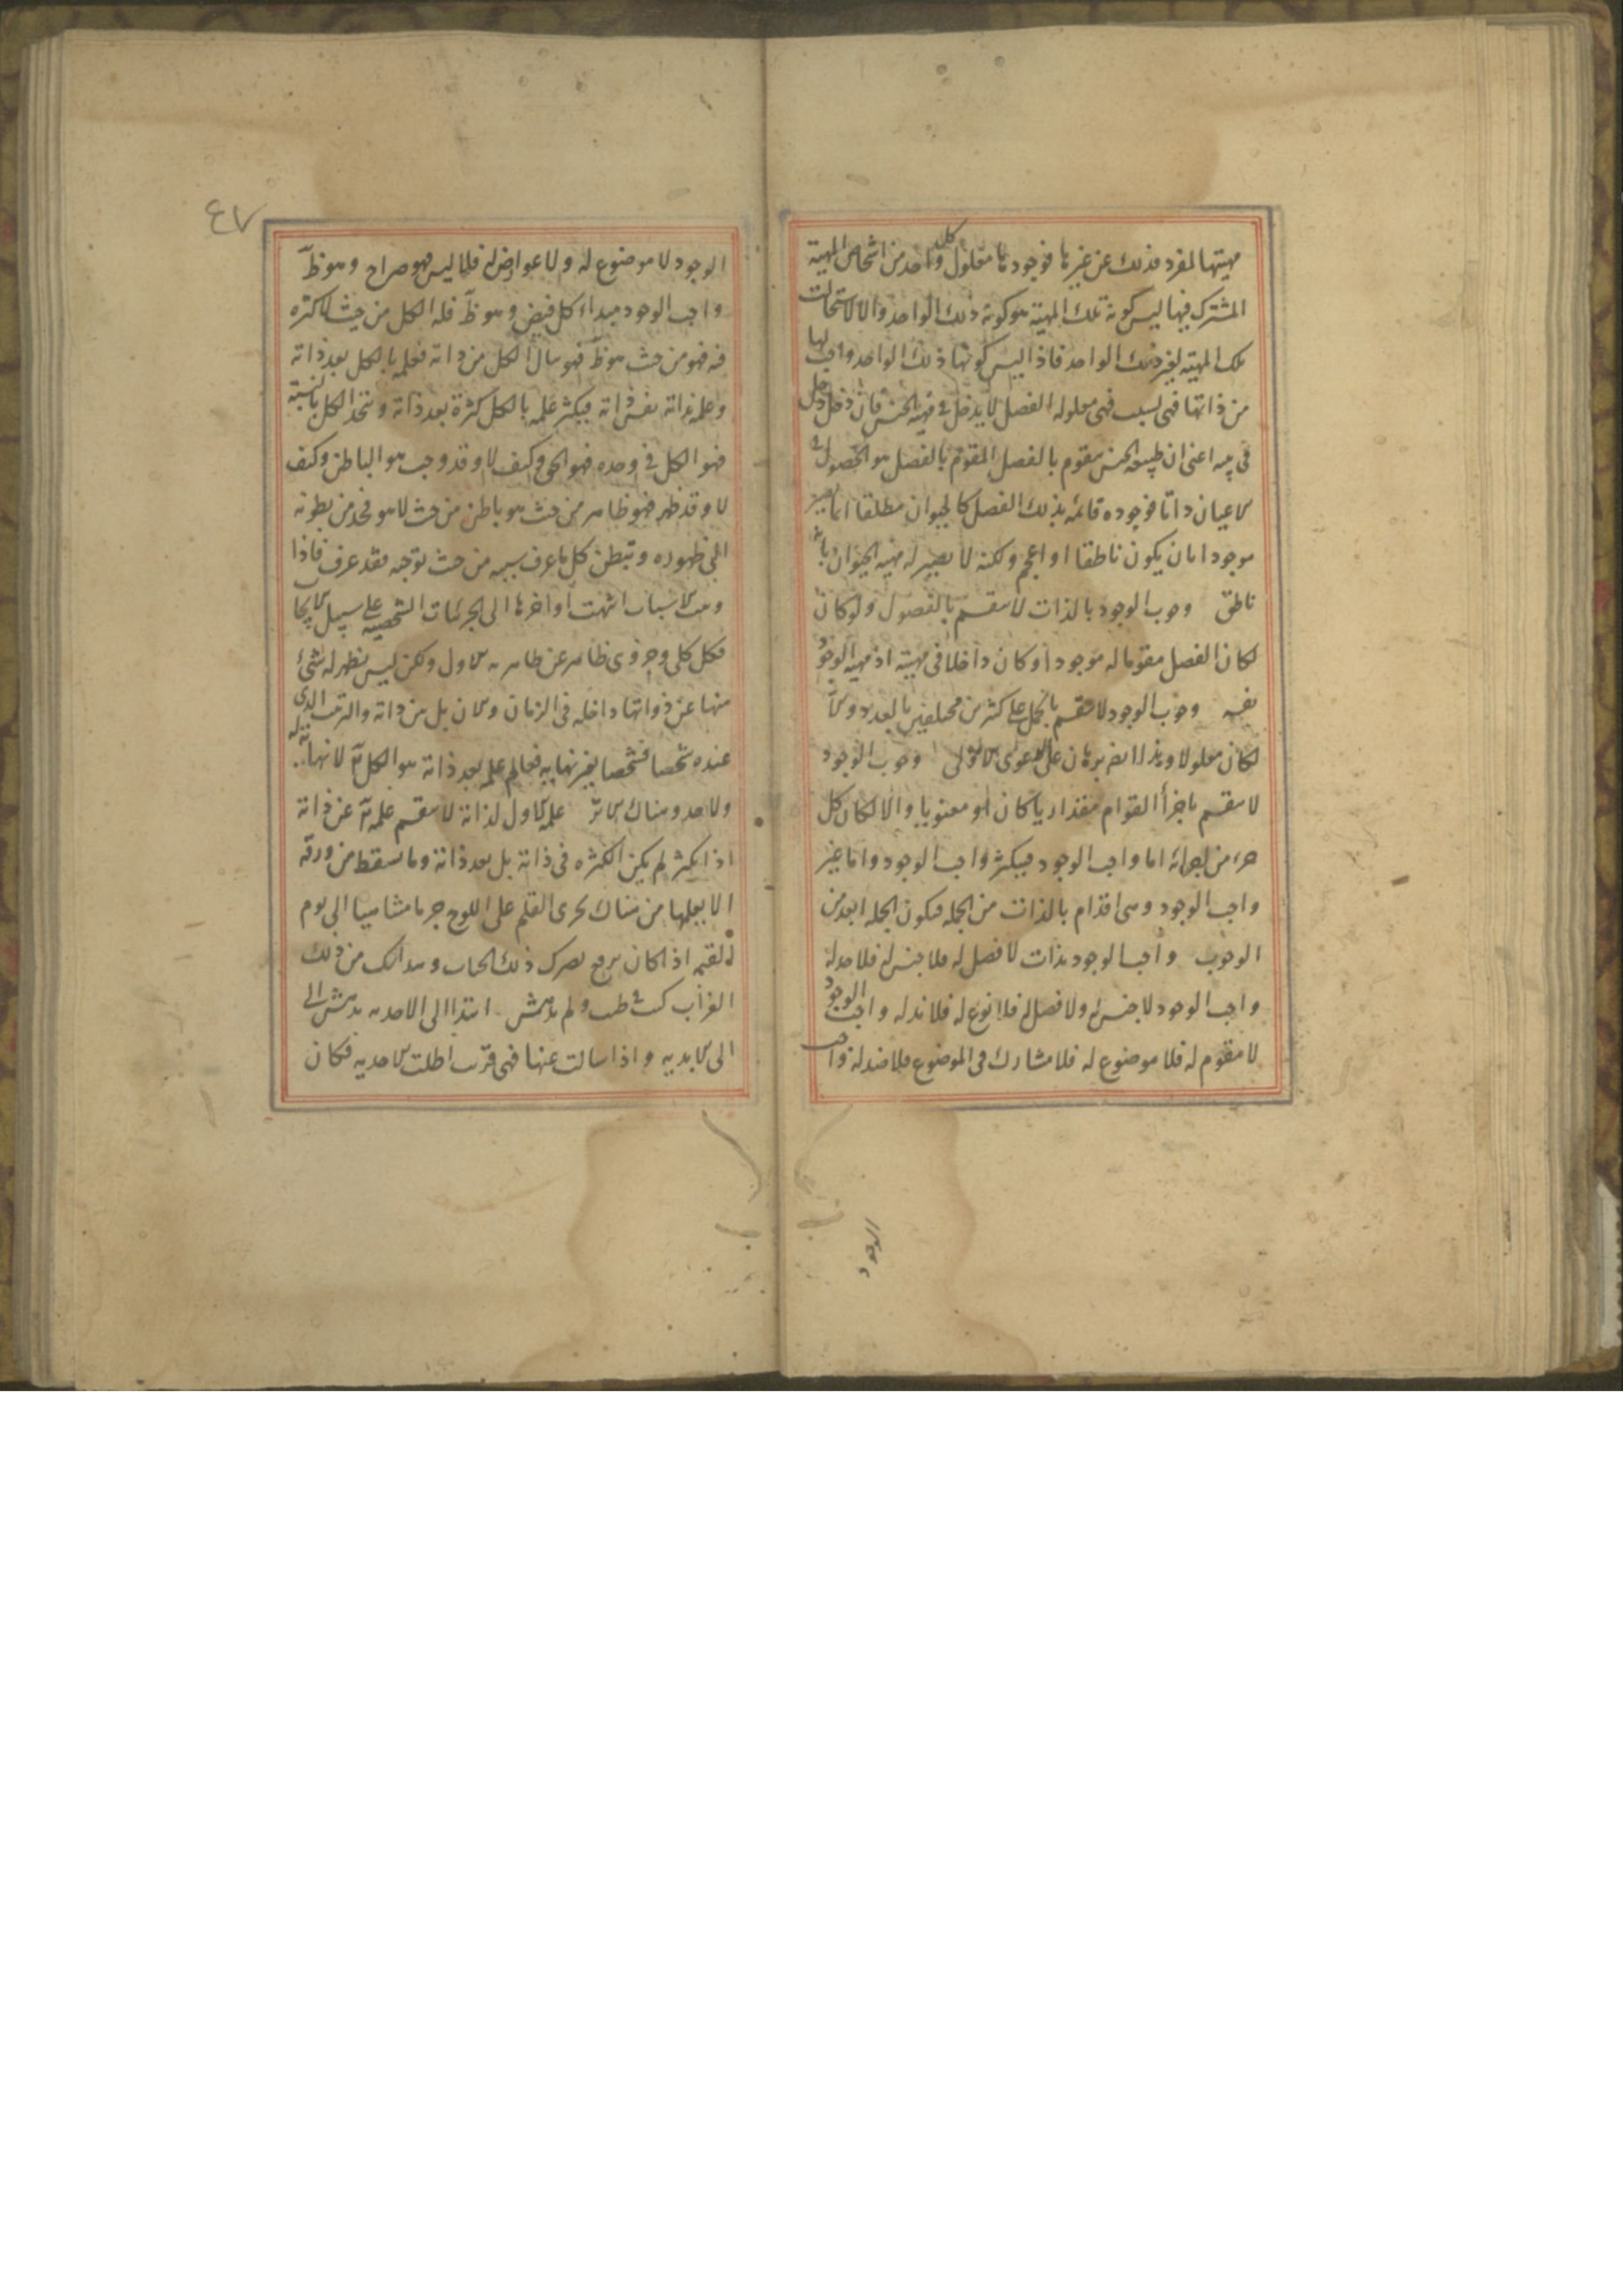 مهيتها لمفرد فذلك عن غيرها فوجودها معلول كل واحد من اشخاص المهية
المشترك فيها ليس كونه تلك المهية هو كونه ذلك الواحد والا لاستحالت
تلك المهية لغير ذلك الواحد فاذا ليس كونها ذلك الواحد واجب لها
من ذاتها فهى لسبب فهى معلوله الفصل لا يدخل فى مهية الجنس فان دخل دخل
فى اعنى ان طبيعه الجنس يتقوم بالفصل المقوم بالفصل هو الحصول فى
الاعيان ذاتا موجوده قائمه بذلك الفصل كالحيوان مطلقا انما يصير
موجودا بان يكون ناطقا او اعجم ولكنه لا يصير له مهية الحيوان بانه
ناطق وجوب الوجود بالذات لا ينقسم بالفصول ولو كان
لكان الفصل مقوما له موجودا وكان داخلا فى مهيته اذ مهية الوجود
نفسه وجوب الوجود لا ينقسم بالحمل على كثيرين مختلفين بالعدد والا
لكان معلولا وهذا ايضا برهان على الدعوى الاولى وجوب الوجود
لا ينقسم باجزأ القوام مقداريا كان او معنويا والا لكان كل
جزء من اجزائه اما واجب الوجود فيكثر واجب الوجود واما غير
واجب الوجود وهى اقدام بالذات من الجمله فيكون الجمله ابعد من
الوجوب واجب الوجود بذات لا فصل له فلا جنس له فلا حد له
واجب الوجود لا جنس له ولا فصل له فلا نوع له فلا ند له واجب الوجود
لا مقوم له فلا موضوع له فلا مشارك فى الموضوع فلا ضد له واجب
الوجود
٤٧
الوجود لا موضوع له ولا عوارض له فلا لبس فهو صراح وهو ظ
واجب الوجود مبداء كل فيض وهو ظ فله الكل من حيث لا كثره
فيه فهو من حيث هو ظ فهو ينال الكل من ذاته فعلمه بالكل بعد ذاته
وعلمه بذاته نفس ذاته فيكثر علمه بالكل كثرة بعد ذاته ويتحد الكل بالنسبة
فهو الكل فى وحده فهو الحق وكيف لا وقد وجب هو الباطن وكيف
لا وقد ظهر فهو ظاهر من حيث هو باطن من حيث لا هو فخذ من بطونه
الى ظهوره وتبطن كل ما عرف سببه من حيث يوجبه فقد عرف فاذا
رتبت الاسباب انتهت اواخرها الى الجزئيات الشخصيه على سبيل الايجاب
فكل كلى وجزوى ظاهر عن ظاهريه الاول ولكن ليس يظهر له شئ
منها عن ذواتها داخله فى الزمان والان بل من ذاته والترتيب الذى
عنده شخصا فشخصا بغير نهايه فعالم علمه بعد ذاته هو الكل لا نهاية له
ولا حد وهناك الامر علمه الاول لذاته لا ينقسم علمه عن ذاته
اذا يكثر لم يكن الكثره فى ذاته بل بعد ذاته وما تسقط من ورقه
الا يعلمها من هناك يجرى القلم على اللوح جريا متناهيا الى يوم
القيمه اذا كان يرفع بصرك ذلك الجناب ومذاقك من ذلك
الفرات كنت فى طيب ولم تدهش انفذ الى الاحديه تدهش الى
الى الابديه واذا سالت عنها فهى قريب اظلت الاحديه فكان